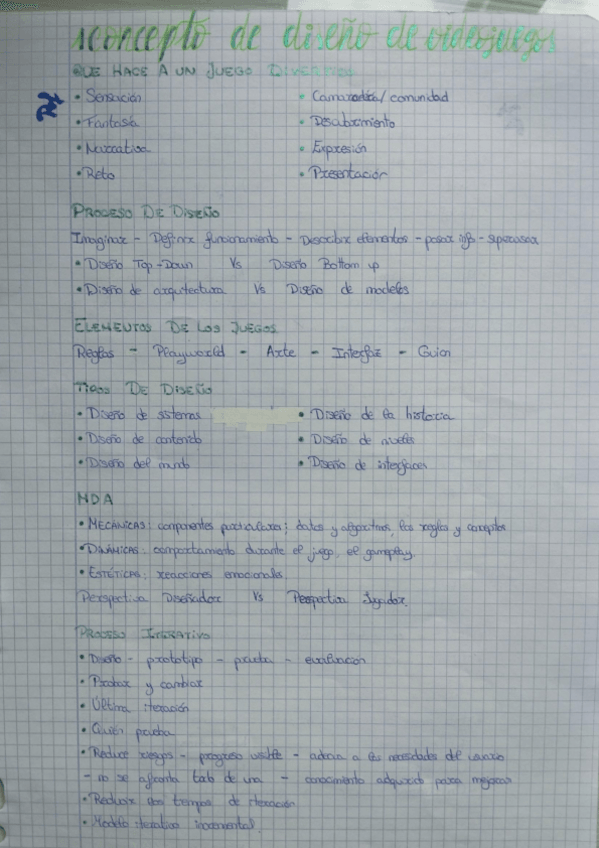 1 concepto de diseño de videojuegos
QUE HACE A UN JUEGO DIVERTIDO
• Sensación
• Camaradería/comunidad
• Fantasía
• Descubrimiento
• Narrativa
• Expresión
• Reto
• Presentación
PROCESO DE DISEÑO
Imaginar - Definir funcionamiento - Describir elementos - pasar info - supervisar
• Diseño Top-Down Vs Diseño Bottom up
• Diseño de arquitectura Vs Diseño de modelos
ELEMENTOS DE LOS JUEGOS
Reglas - Playworld - Arte - Interfaz - Guion
TIPOS DE DISEÑO
• Diseño de sistemas
• Diseño de la historia
• Diseño de contenido
• Diseño de niveles
• Diseño del mundo
• Diseño de interfaces
MDA
• MECÁNICAS: componentes particulares; datos y algoritmos, las reglas y conceptos
• DINÁMICAS: comportamiento durante el juego, el gameplay.
• ESTÉTICAS: reacciones emocionales.
Perspectiva Diseñador Vs Perspectiva Jugador.
PROCESO ITERATIVO
• Diseño - prototipo - prueba - evaluacion
• Probar y cambiar
• Última iteración
• Quién prueba
• Reduce riesgos - progreso visible - a las necesidades del usuario
- no se afronta todo de una - conocimiento adquirido para mejorar
• Reducir los tiempos de iteración
• Modelo iterativo incremental.